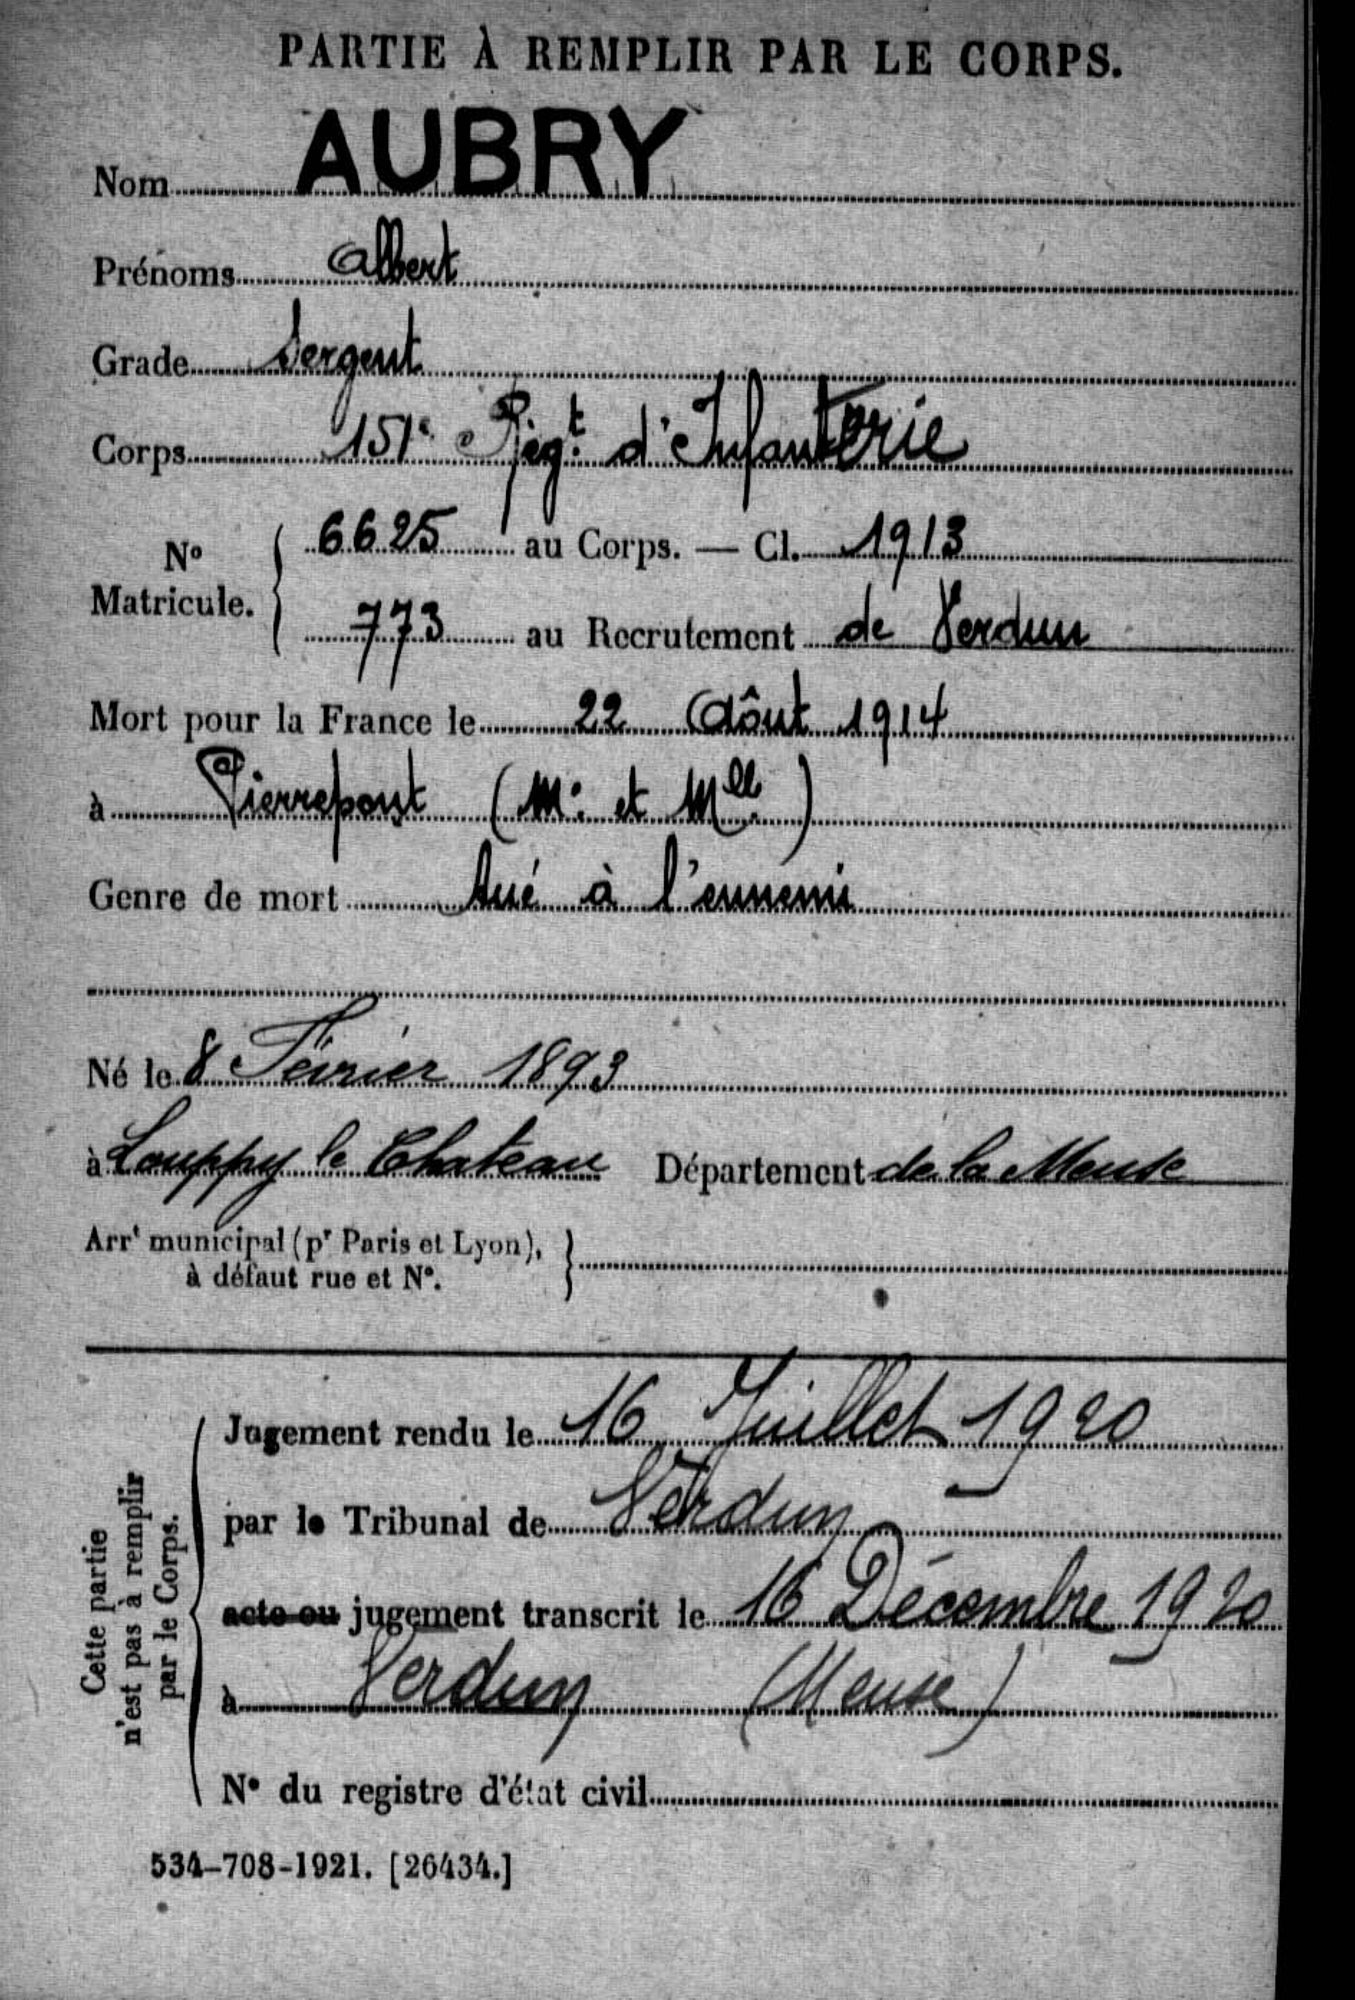 PARTIE À REMPLIR PAR LE CORPS.
Nom AUBRY
Prénoms Albert
Grade Sergent
Corps 151e Régt d'Infanterie
No Matricule. { 6625 au Corps. — Cl. 1913
773 au Recrutement de Verdun
Mort pour la France le 22 Aôut 1914
à Pierrepont (Me et Mlle)
Genre de mort tué à l'ennemi
Né le 8 Février 1893
à Louppy le Chateau Département de la Meuse
Arrt municipal (pr Paris et Lyon), }
à défaut rue et No.
Cette partie
n'est pas à remplir
par le Corps.
Jugement rendu le 16 Juillet 1920
par le Tribunal de Verdun
acte ou jugement transcrit le 16 Décembre 1920
à Verdun (Meuse)
No du registre d'état civil
534-708-1921. [26434.]